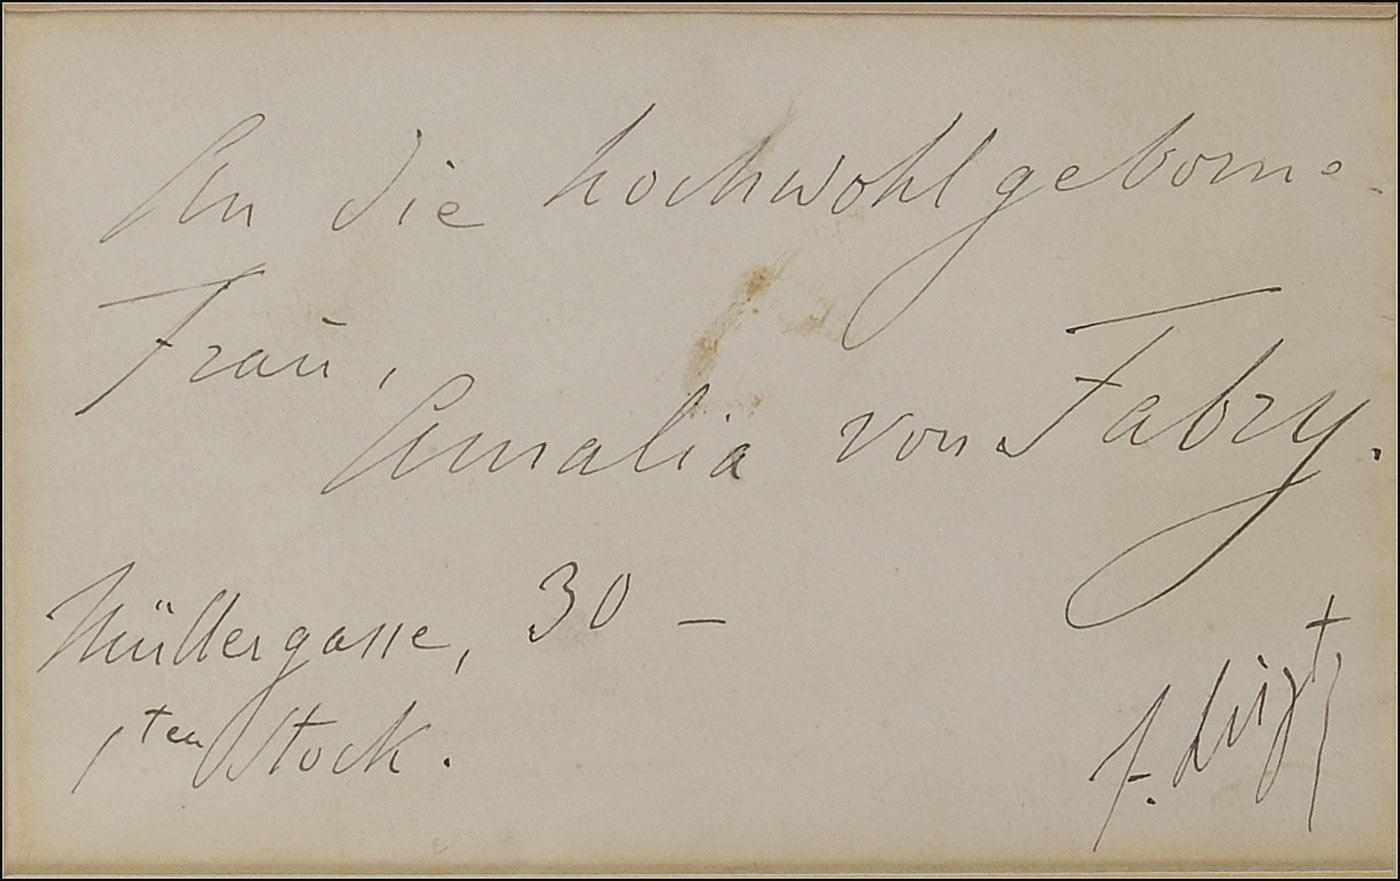 An die hochwohlgeborne
Frau,
Amalia von Fabry.
Müllergasse, 30 –
1ten Stock.
F. Liszt